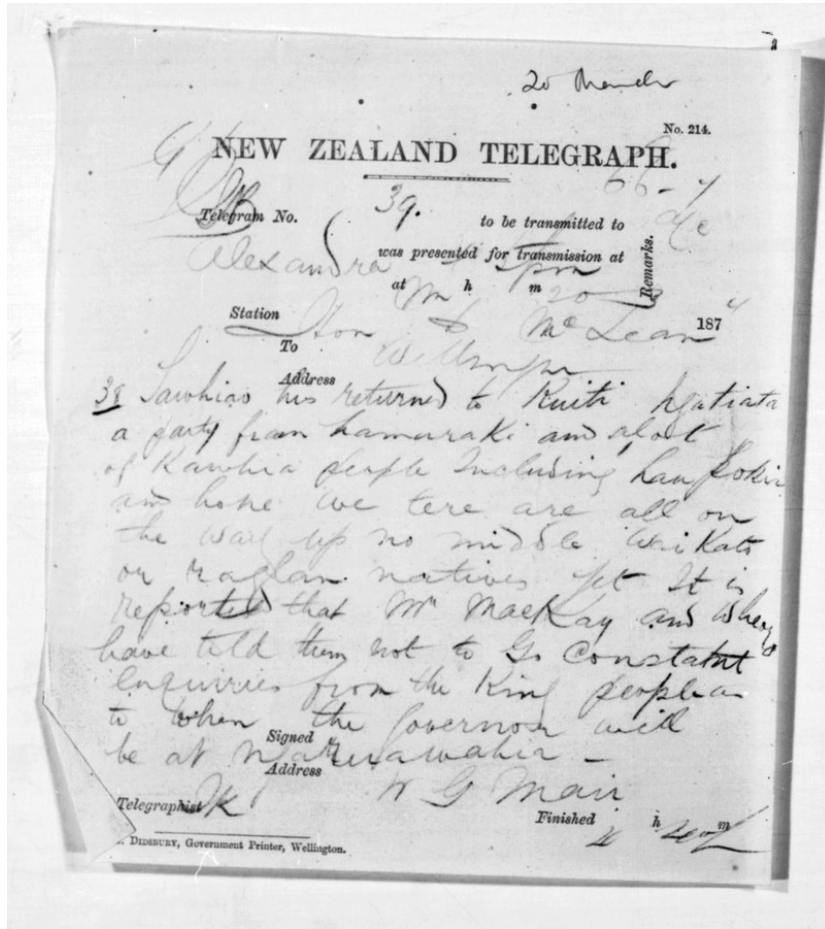 20 March
No. 214.
NEW ZEALAND TELEGRAPH.
66-
Telegram No. 39. to be transmitted to
Alexandra was presented for transmission at
Remarks.
at h m 20
Station Hon D McLean 187
To
Wellington
Address
38 Tawhiao has returned to Kuiti Ngatiata
a party from hamuraki and alot
of Kawhia people Including hau
and hone we tere are all on
the way up no middle Waikato
or raglan natives yet It is
reported that Mr MacKay and
have told them not to Go Constant
enquiries from the King people as
to when the Governor will
be at Ngaruawahia -
Signed
Address
W G Mair
Telegraphist
Finished h m
. DIDSBURY, Government Printer, Wellington.